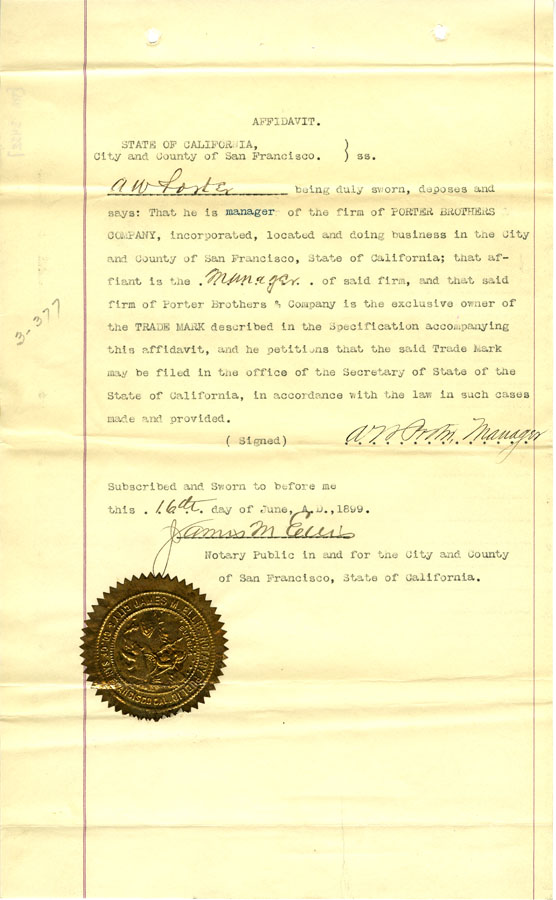 AFFIDAVIT.
STATE OF CALIFORNIA,
City and County of San Francisco. ) ss.
A W Porter being duly sworn, deposes and
says: That he is manager of the firm of PORTER BROTHERS
COMPANY, incorporated, located and doing business in the City
and County of San Francisco, State of California; that af-
fiant is the .Manager. . of said firm, and that said
firm of Porter Brothers & Company is the exclusive owner of
the TRADE MARK described in the Specification accompanying
this affidavit, and he petitions that the said Trade Mark
may be filed in the office of the Secretary of State of the
State of California, in accordance with the law in such cases
made and provided.
(Signed) A W Porter, Manager
Subscribed and Sworn to before me
this .16th. day of June, A.D.,1899.
James M Ellis
Notary Public in and for the City and County
of San Francisco, State of California.
JAMES M. ELLIS
3-377